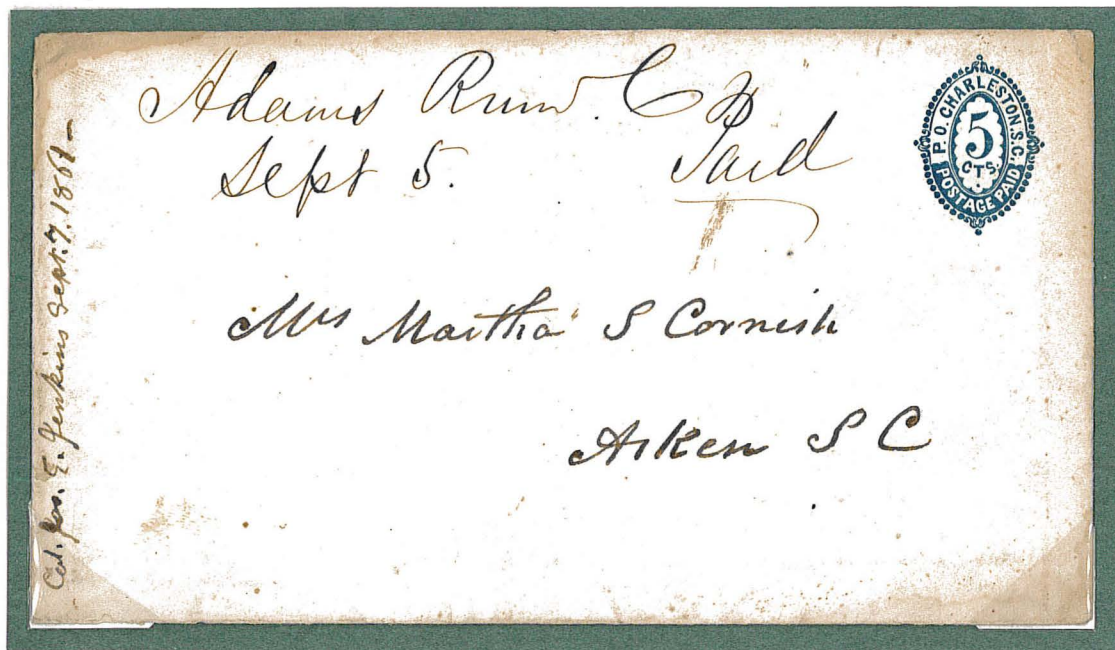 Adams Run. C
Sept 5. Paid
P.O. CHARLESTON. S.C.
5
CTS.
POSTAGE PAID
Mrs Martha S Cornish
Aiken S C
Col. Jos. E. Jenkins Sept. 7, 1861 –